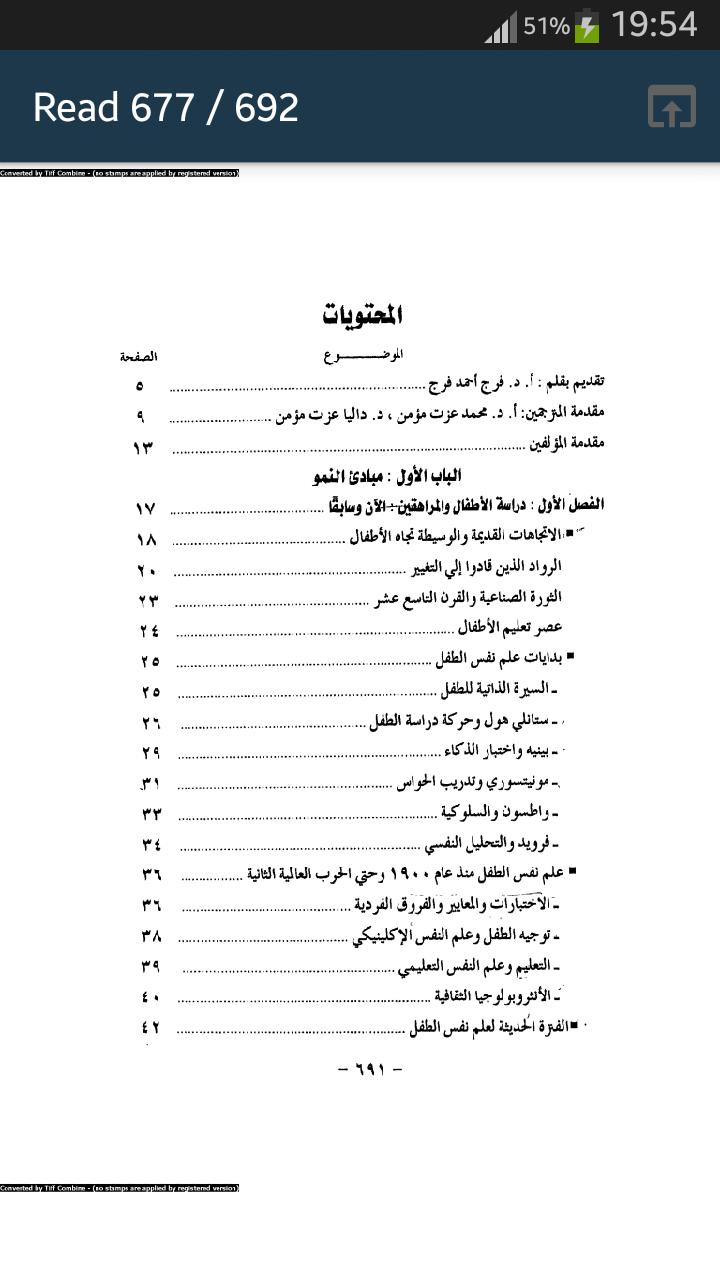 51% 19:54
Read 677 / 692
Converted by Tiff Combine - (no stamps are applied by registered version)
المحتويات
الموضـــــــــوع الصفحة
تقديم بقلم : أ. د. فرج أحمد فرج ٥
مقدمة المترجمين: أ. د. محمد عزت مؤمن ، د. داليا عزت مؤمن ٩
مقدمة المؤلفين ١٣
الباب الأول : مبادئ النمو
الفصل الأول : دراسة الأطفال والمراهقين : الآن وسابقًا ١٧
■ الاتجاهات القديمة والوسيطة تجاه الأطفال ١٨
الرواد الذين قادوا إلي التغيير ٢٠
الثورة الصناعية والقرن التاسع عشر ٢٣
عصر تعليم الأطفال ٢٤
■ بدايات علم نفس الطفل ٢٥
ـ السيرة الذاتية للطفل ٢٥
ـ ستانلي هول وحركة دراسة الطفل ٢٦
ـ بينيه واختبار الذكاء ٢٩
ـ مونيتسوري وتدريب الحواس ٣١
ـ واطسون والسلوكية ٣٣
ـ فرويد والتحليل النفسي ٣٤
■ علم نفس الطفل منذ عام ١٩٠٠ وحتي الحرب العالمية الثانية ٣٦
ـ الاختبارات والمعايير والفروق الفردية ٣٦
ـ توجيه الطفل وعلم النفس الإكلينيكي ٣٨
ـ التعليم وعلم النفس التعليمي ٣٩
ـ الأنثروبولوجيا الثقافية ٤٠
■ الفترة الحديثة لعلم نفس الطفل ٤٢
– ٦٩١ –
Converted by Tiff Combine - (no stamps are applied by registered version)